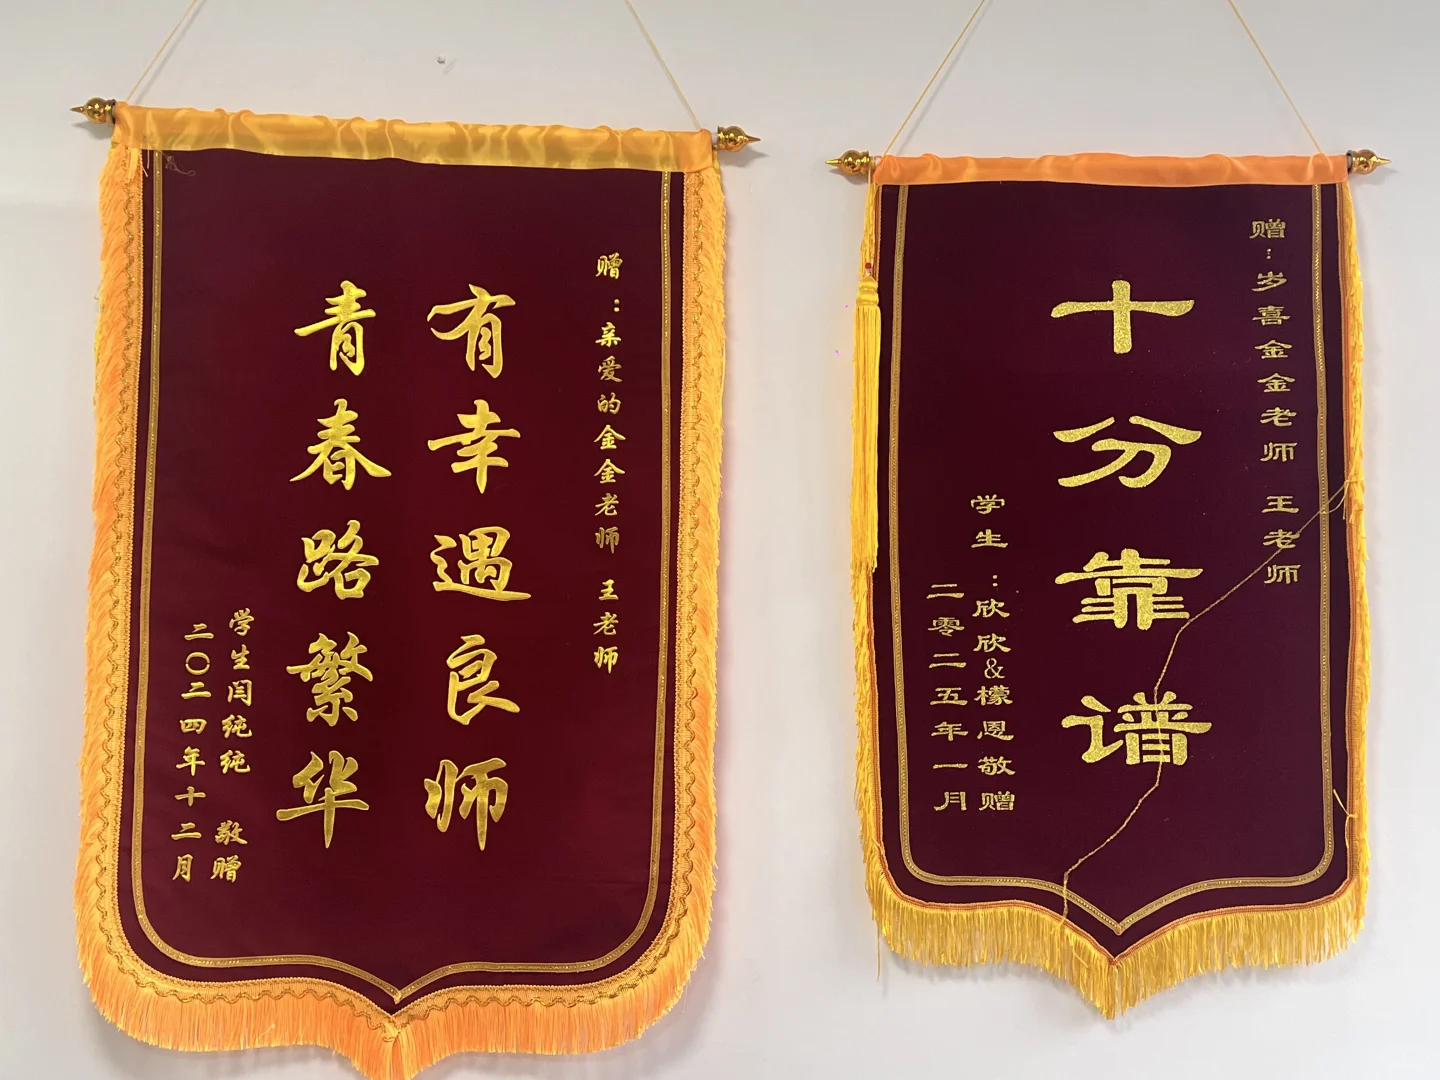 赠：亲爱的金金老师 王老师
有幸遇良师
青春路繁华
学生闫纯纯 敬赠
二〇二四年十二月
赠：岁喜金金老师 王老师
十分靠谱
学生：欣欣&檬恩敬赠
二零二五年一月